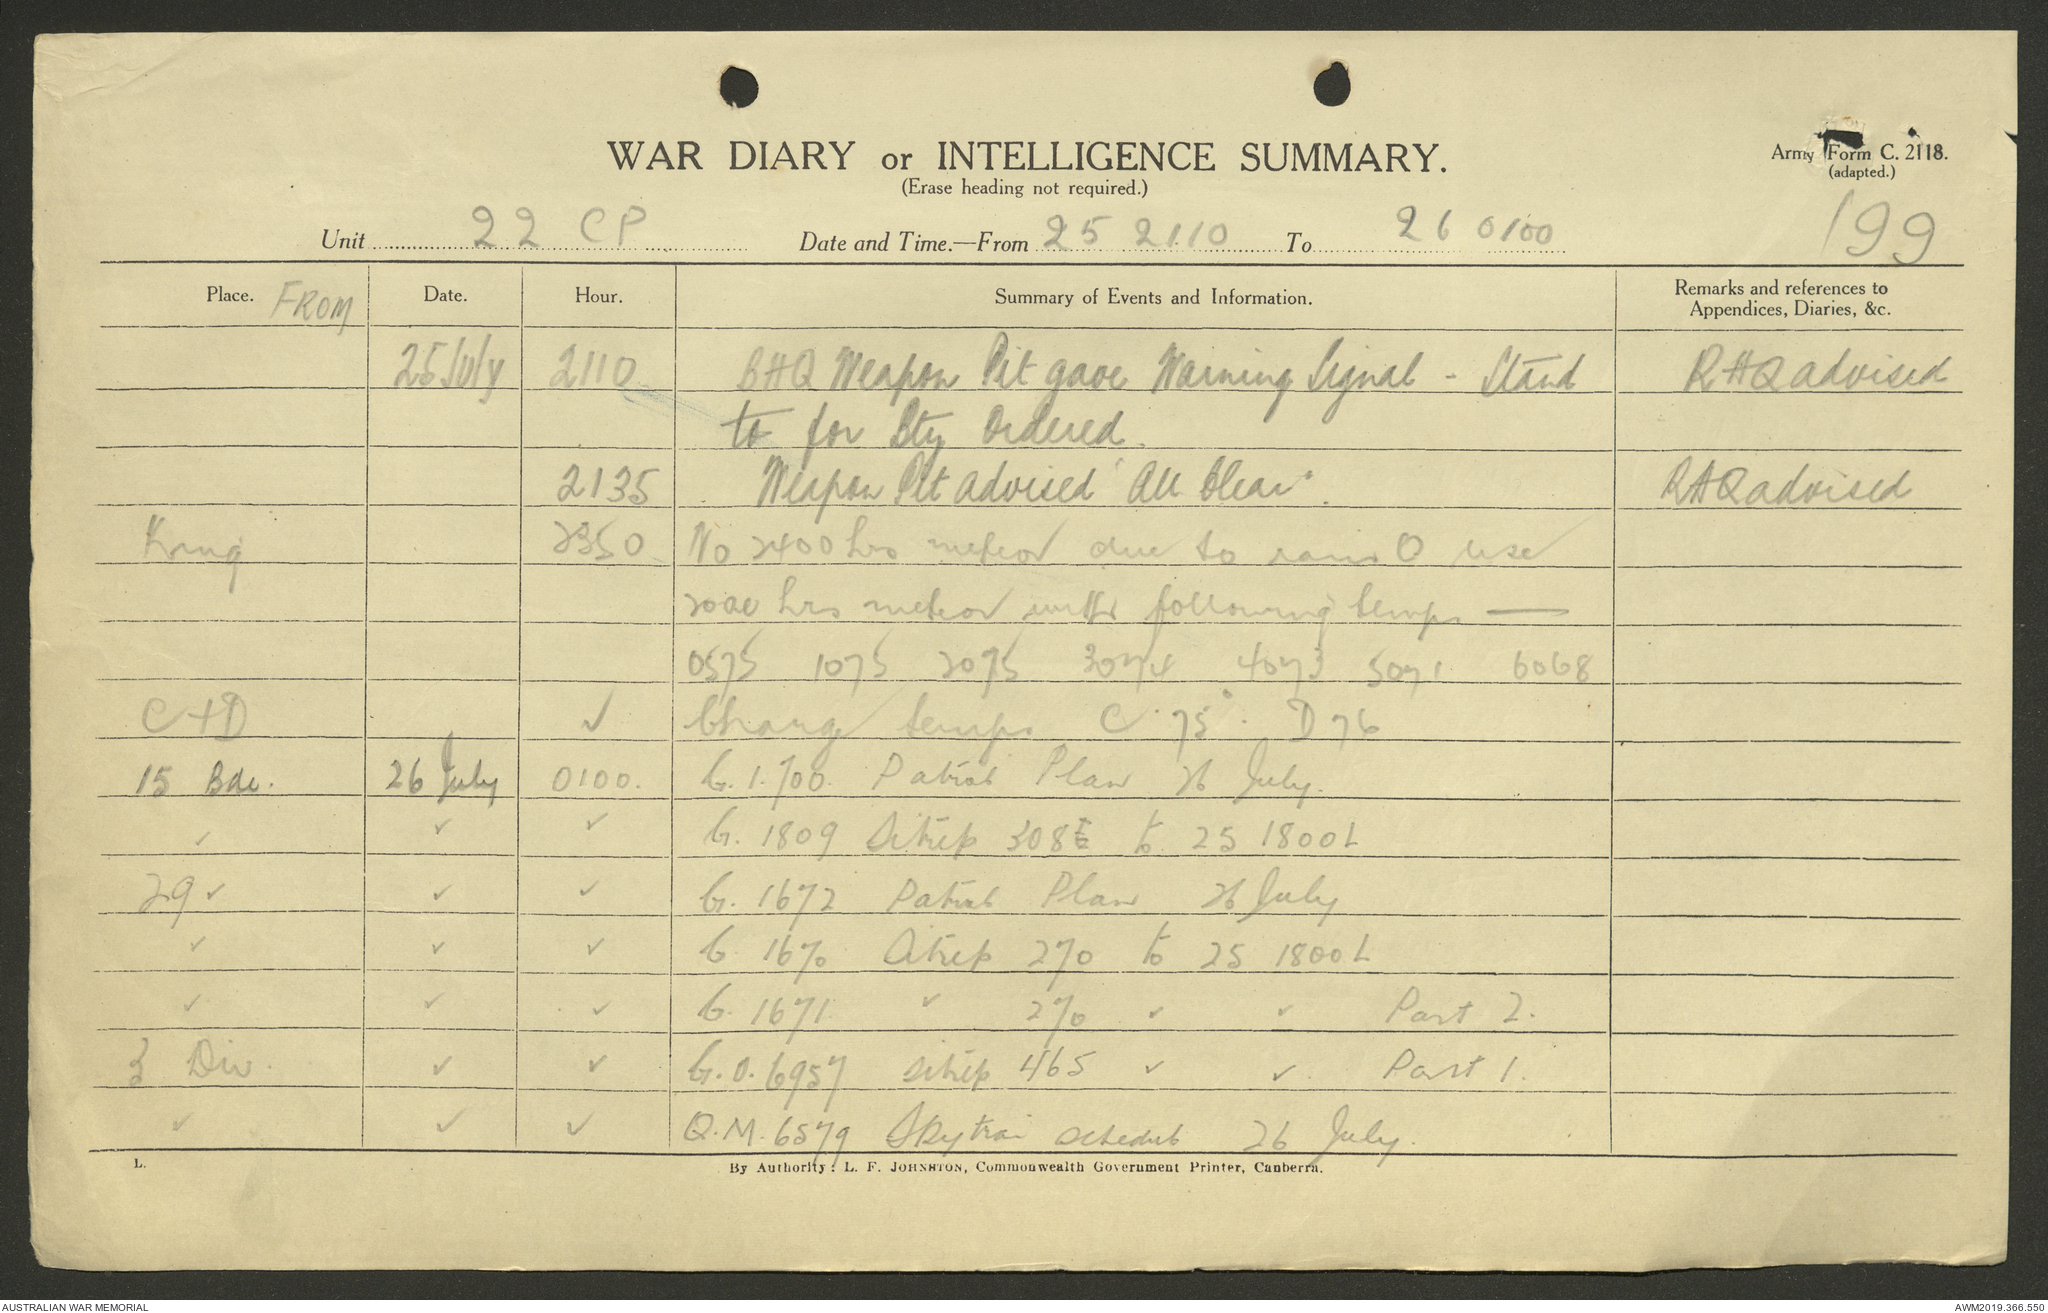 WAR DIARY or INTELLIGENCE SUMMARY.
(Erase heading not required.)
Army Form C. 2118.
(adapted.)
199
Unit 22 CP Date and Time.—From 25 2110 To 26 0100
Place. FROM Date. Hour. Summary of Events and Information. Remarks and references to
Appendices, Diaries, &c.
25 July 2110 BHQ Weapon Pit gave Warning Signal - Stand RHQ advised
to for Bty Ordered.
2135 Weapon Pit advised "All Clear". RHQ advised
2350 No 2400 hrs meteor due to rain O use
2000 hrs meteor with following temps —
0575 1075 2075 3074 4073 5071 6068
C + D ✓ Charge temps C 75° D 76
15 Bde. 26 July 0100. G. 1.700. Patrol Plan 26 July.
✓ ✓ ✓ G. 1809 Sitrep 308 to 25 1800L
29 ✓ ✓ ✓ G. 1672 Patrol Plan 26 July
✓ ✓ ✓ G 1670 Sitrep 270 to 25 1800L
✓ ✓ ✓ G. 1671 " 270 ✓ ✓ Part 2.
3 Div. ✓ ✓ G.O. 6957 sitrep 465 ✓ ✓ Part 1.
✓ ✓ ✓ Q.M. 6579 Skytrain schedule 26 July.
L.
By Authority: L. F. JOHNSTON, Commonwealth Government Printer, Canberra.
AUSTRALIAN WAR MEMORIAL
AWM2019.366.550